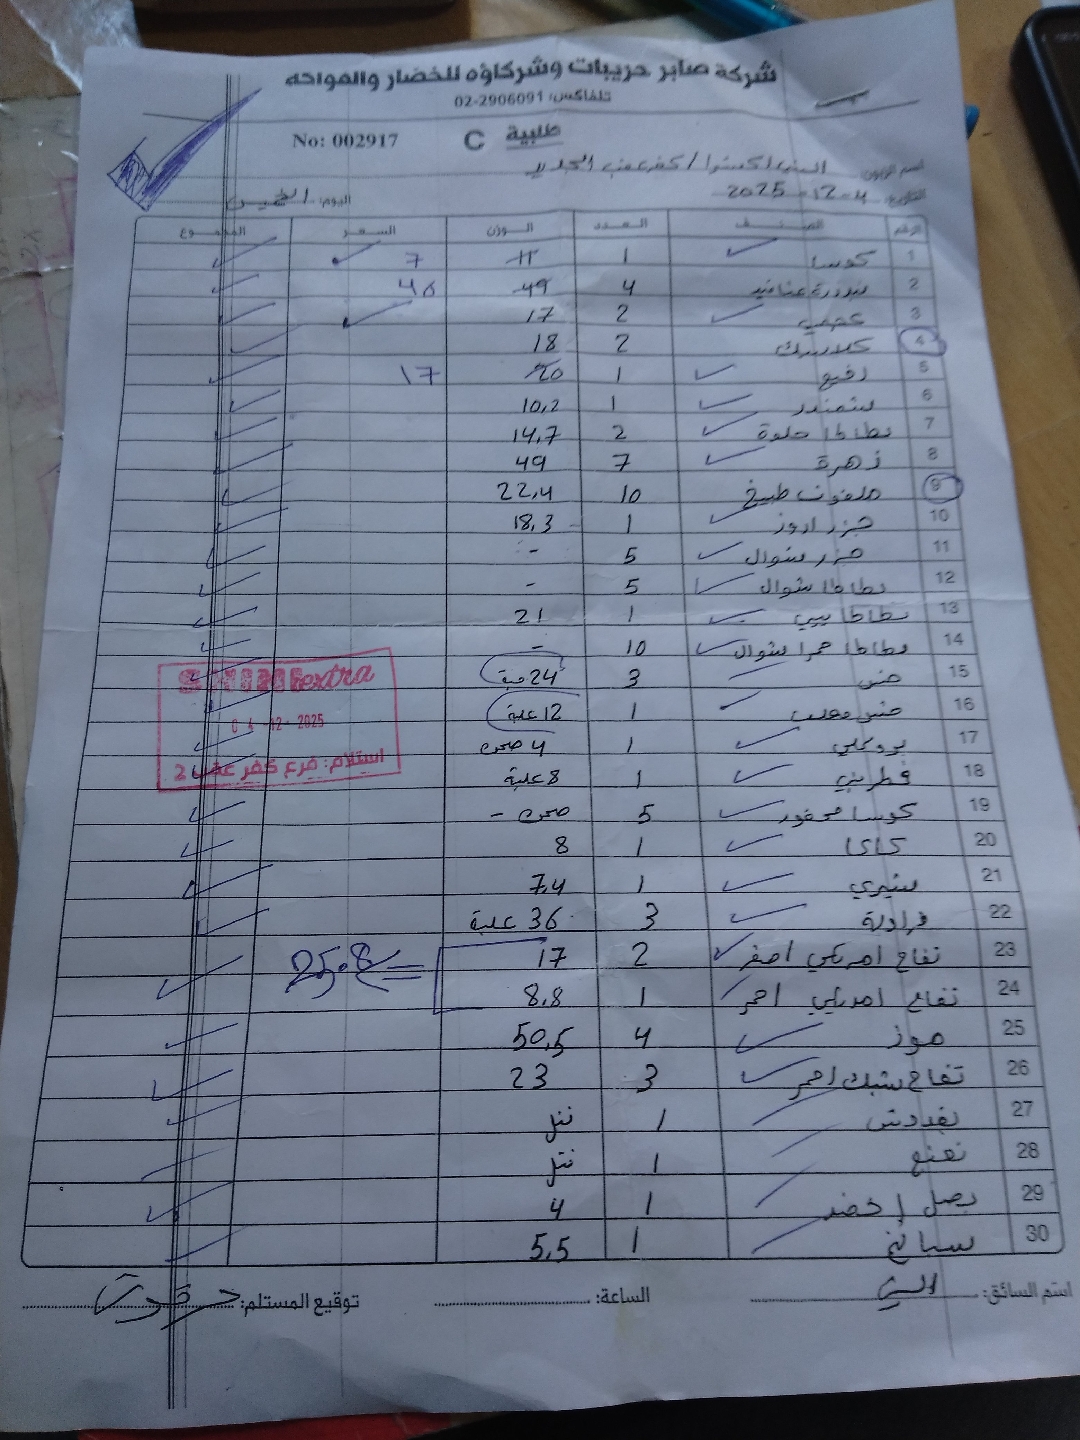 شركة صابر حريبات وشركاؤه للخضار والفواكه
تلفاكس: 02-2906091
طلبية C No: 002917
اسم الزبون: السني اكسترا / كفر عقب الجديد
التاريخ: 4-12-2025 اليوم: الخميس
الرقم الصنف العدد الوزن السعر المجموع
1 كوسا 1 7
2 بندورة عناقيد 4 49 48
3 2 17
4 كلاسيك 2 18
5 رفيع 1 20 17
6 شمندر 1 10,2
7 بطاطا حلوة 2 14,7
8 زهرة 7 49
9 ملفوف طبيخ 10 22,4
10 جزر اروز 1 18,3
11 جزر شوال 5 -
12 بطاطا شوال 5 -
13 بطاطا بيبي 1 21
14 بطاطا حمرا شوال 10 -
15 خس 3 24 حبة
16 خس معلب 1 12 علبة
17 بروكلي 1 4 صحن
18 فطر بني 1 8 علبة
19 كوسا محفور 5 صحن -
20 كاكا 1 8
21 شيري 1 7,4
22 فراولة 3 36 علبة
23 تفاح امريكي اصفر 2 17 25.8
24 تفاح امريكي احمر 1 8,8
25 موز 4 50,5
26 تفاح شبك احمر 3 23
27 بقدونس 1
28 نعنع 1
29 بصل اخضر 1 4
30 سبانخ 1 5,5
SHINI extra
04-12-2025
استلام: فرع كفر عقب 2
اسم السائق: الساعة: توقيع المستلم: